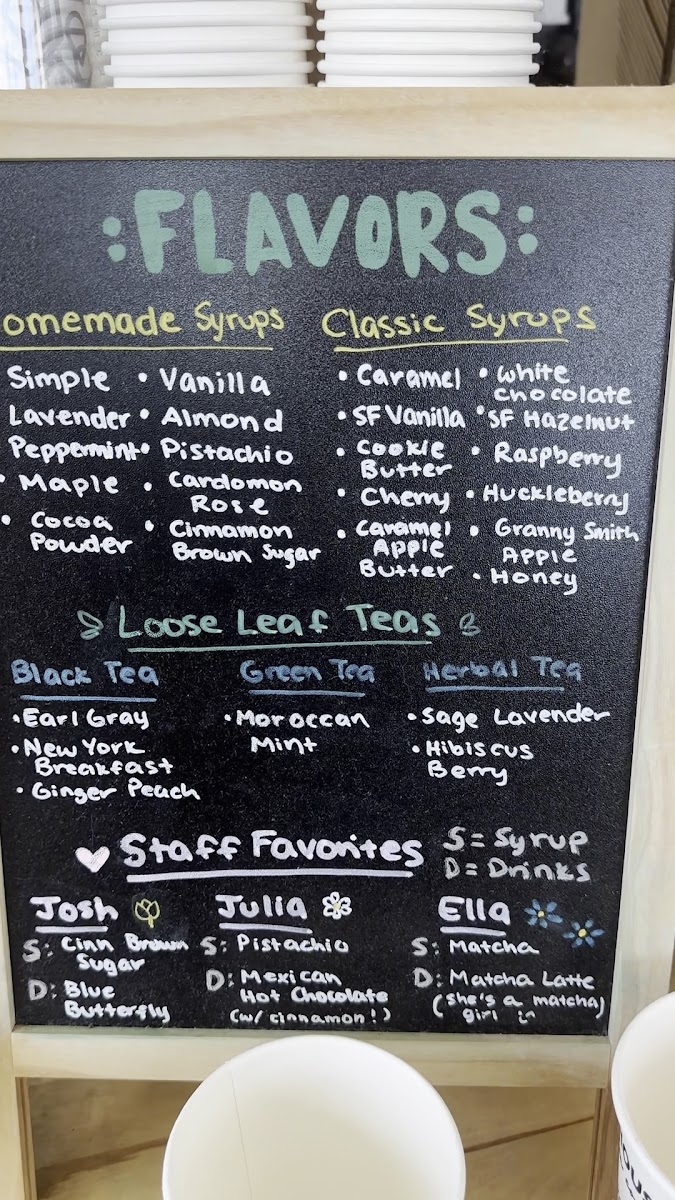 :FLAVORS:
omemade Syrups
Simple • Vanilla
Lavender • Almond
Peppermint • Pistachio
• Maple • Cardomon
Rose
• Cocoa
Powder
• Cinnamon
Brown Sugar
Classic Syrups
• Caramel • White
chocolate
• SF Vanilla • SF Hazelnut
• Cookie
Butter
• Raspberry
• Cherry • Huckleberry
• Caramel
Apple
Butter
• Granny Smith
Apple
• Honey
Loose Leaf Teas
Black Tea
• Earl Gray
• New York
Breakfast
• Ginger Peach
Green Tea
• Moroccan
Mint
Herbal Tea
• Sage Lavender
• Hibiscus
Berry
Staff Favorites
S = Syrup
D = Drinks
Josh
S: Cinn Brown
Sugar
D: Blue
Butterfly
Julia
S: Pistachio
D: Mexican
Hot Chocolate
(w/ cinnamon!)
Ella
S: Matcha
D: Matcha Latte
(she's a matcha)
girl